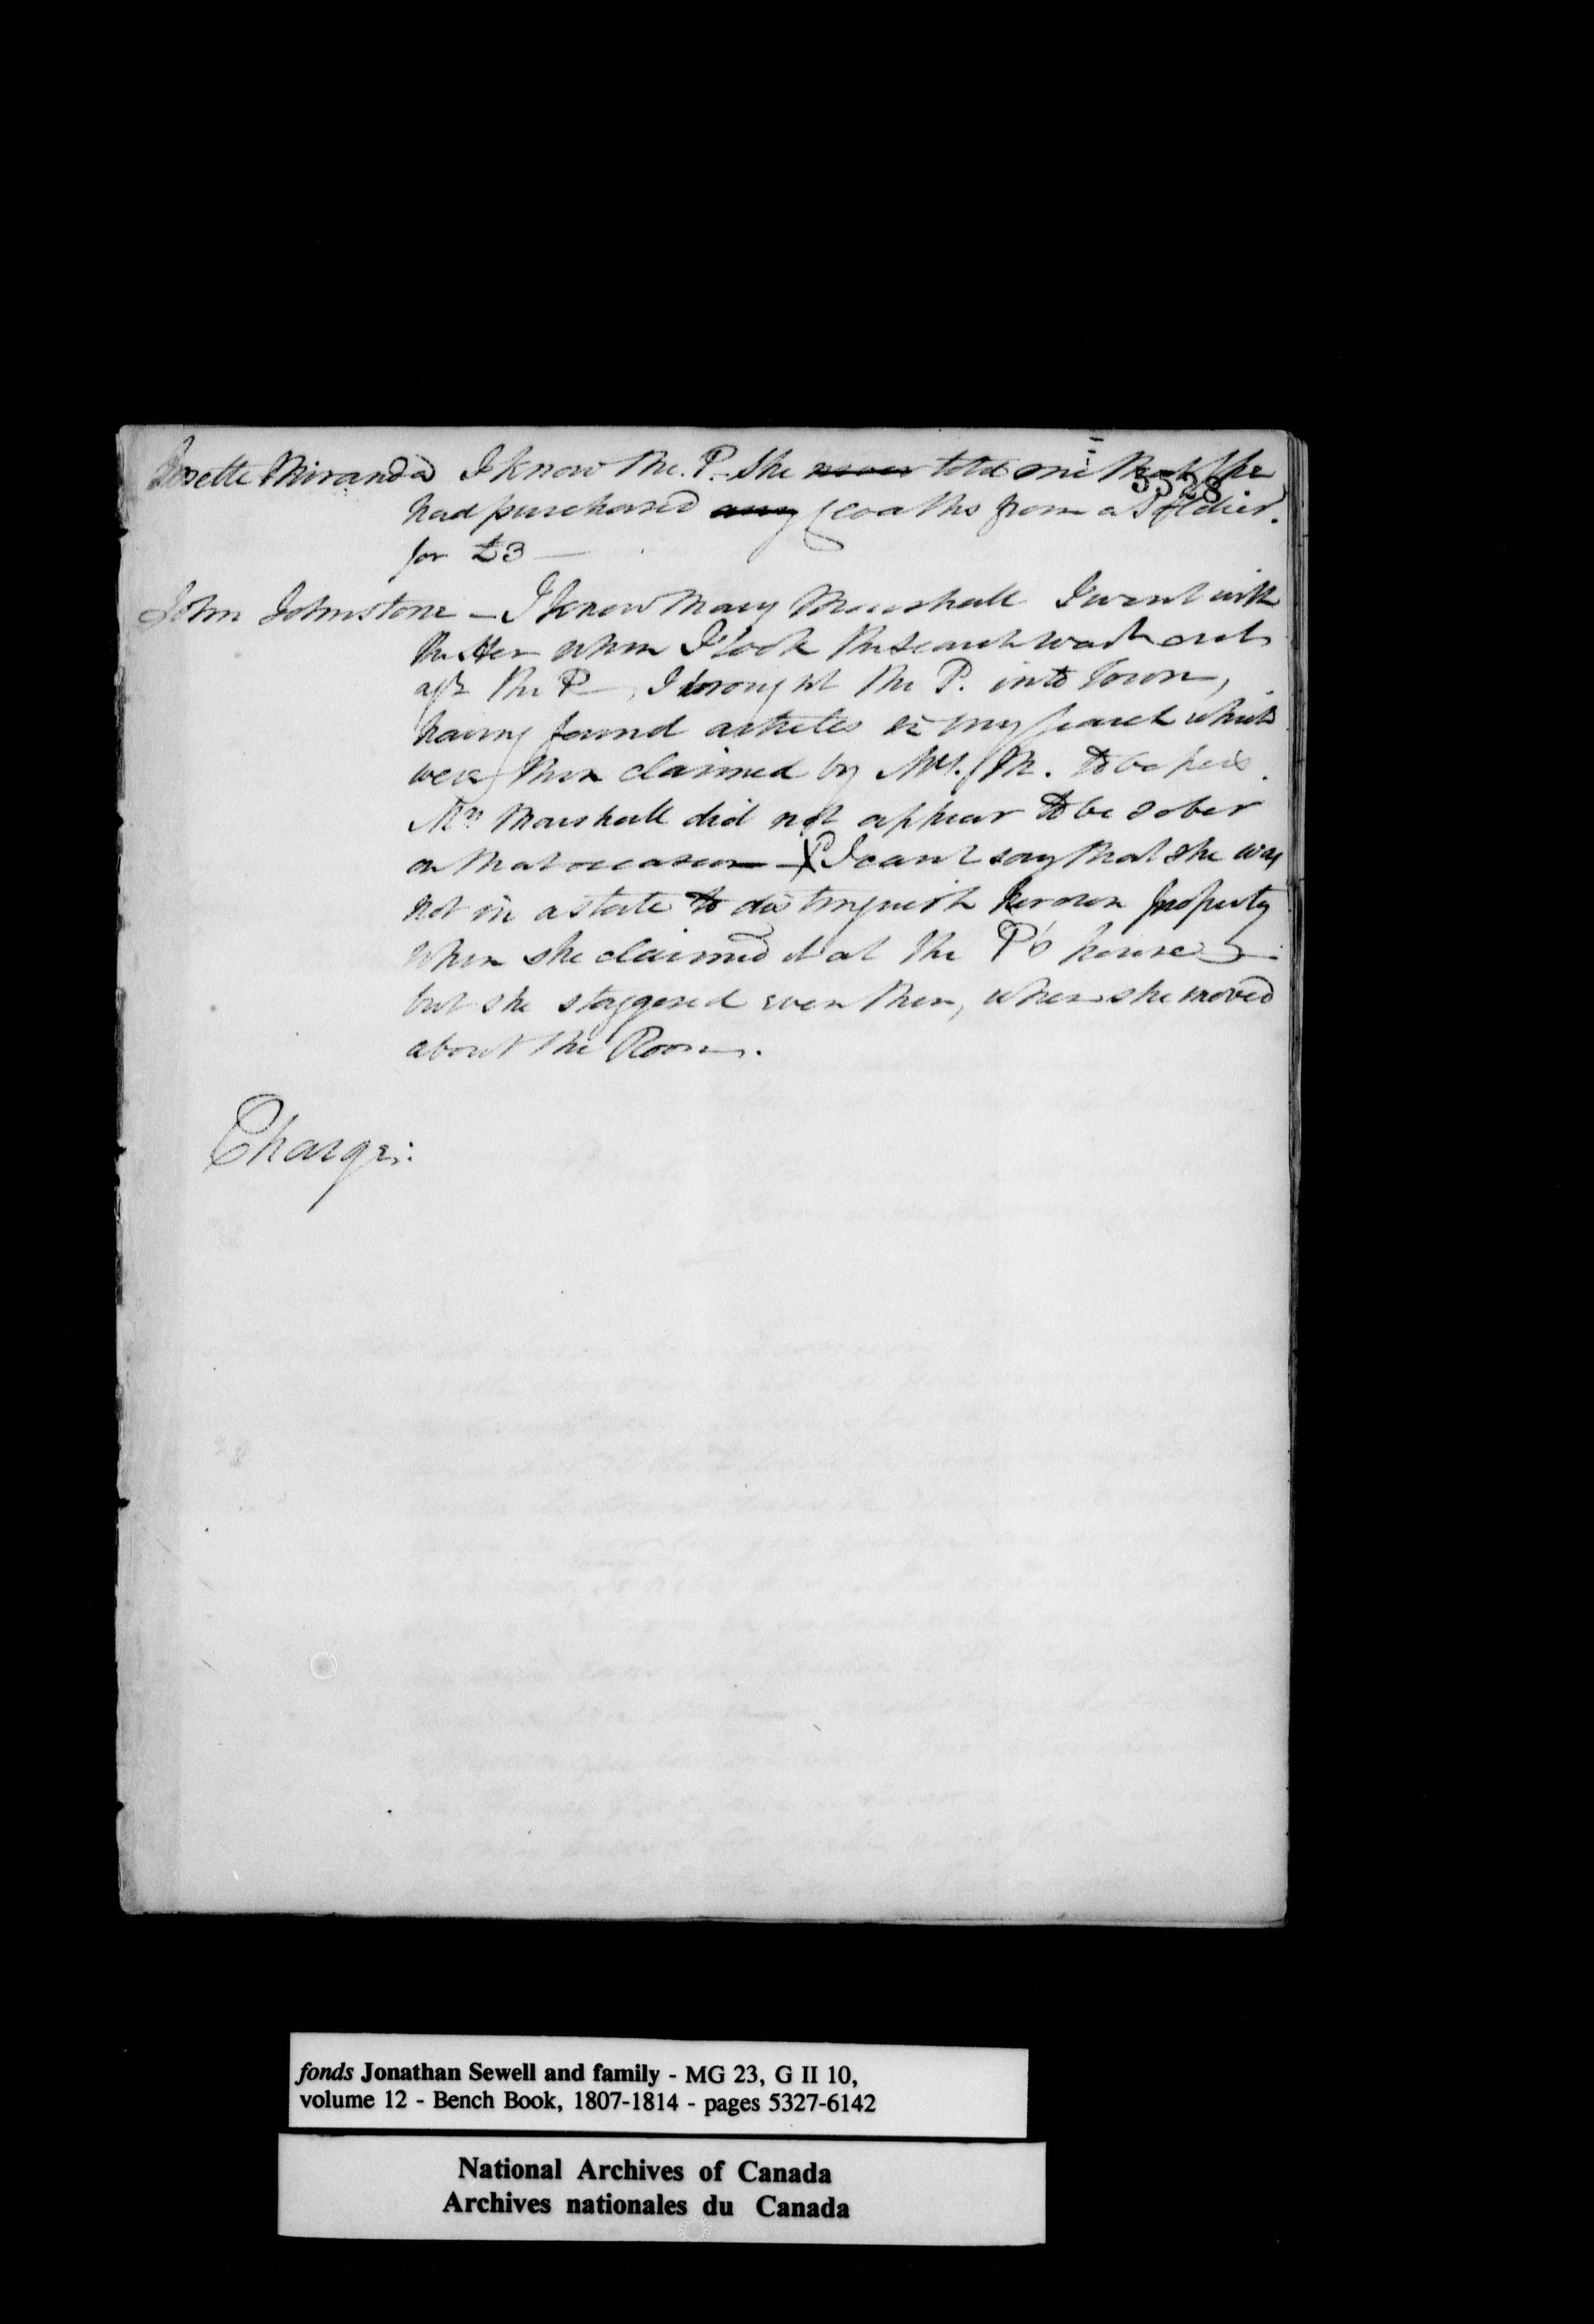 Josette Miranda I know the P. She never told me that she
5528
had purchased any cloaths from a Soldier.
for £3 —
John Johnstone – I know Mary Marshall I went with
her when I took the search warrant out
agt the P—, I brought the P. into Town,
having found articles in my search which
were then claimed by Mrs. M. to be hers.
Mrs Marshall did not appear to be sober
on that occasion – I cant say that she was
not in a state to distinguish her own property
when she claimed it at the P's house –
but she staggered even then, when she moved
about the Room.
Charge:
fonds Jonathan Sewell and family - MG 23, G II 10,
volume 12 - Bench Book, 1807-1814 - pages 5327-6142
National Archives of Canada
Archives nationales du Canada